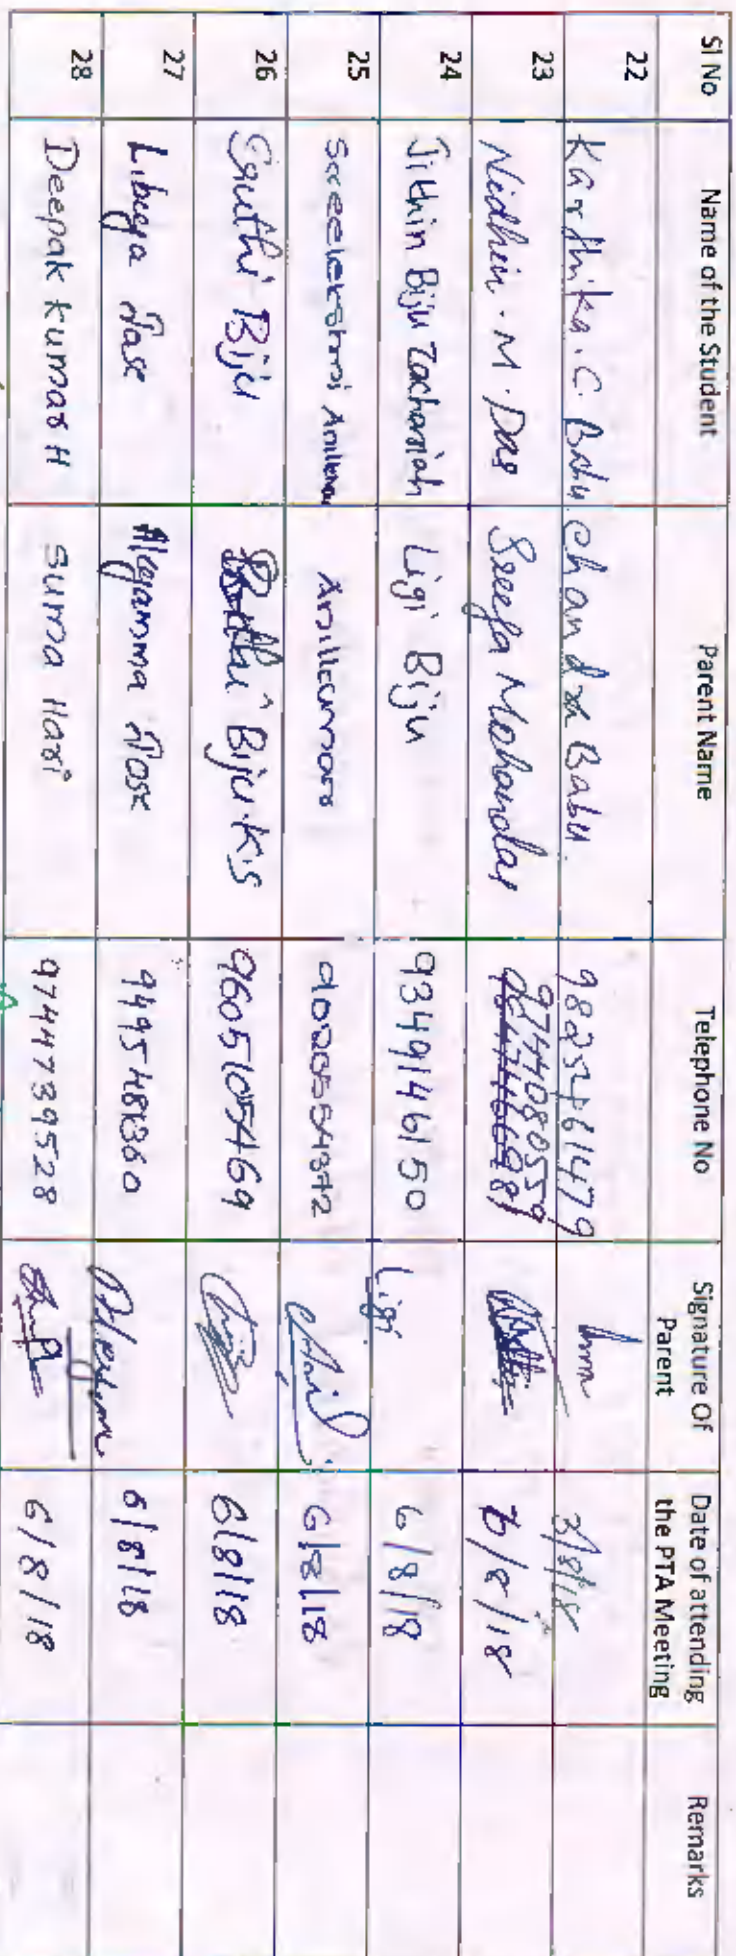 Sl No Name of the Student Parent Name Telephone No Signature Of Parent Date of attending the PTA Meeting Remarks
22 Karthika. C. Babu Chandra Babu 3/8/18
23 Nidhin. M. Das Mohandas 9744080559 6/8/18
24 Jithin Biju Zachariah Ligi Biju 9349146150 Ligi 6/8/18
25 Sreelekshmi Anilkumar 6/8/18
26 Sruthi Biju Biju. K.S 9605105469 6/8/18
27 Jose Aleyamma Jose 6/8/18
28 Deepak Kumar H Suma Hari 9744739528 6/8/18